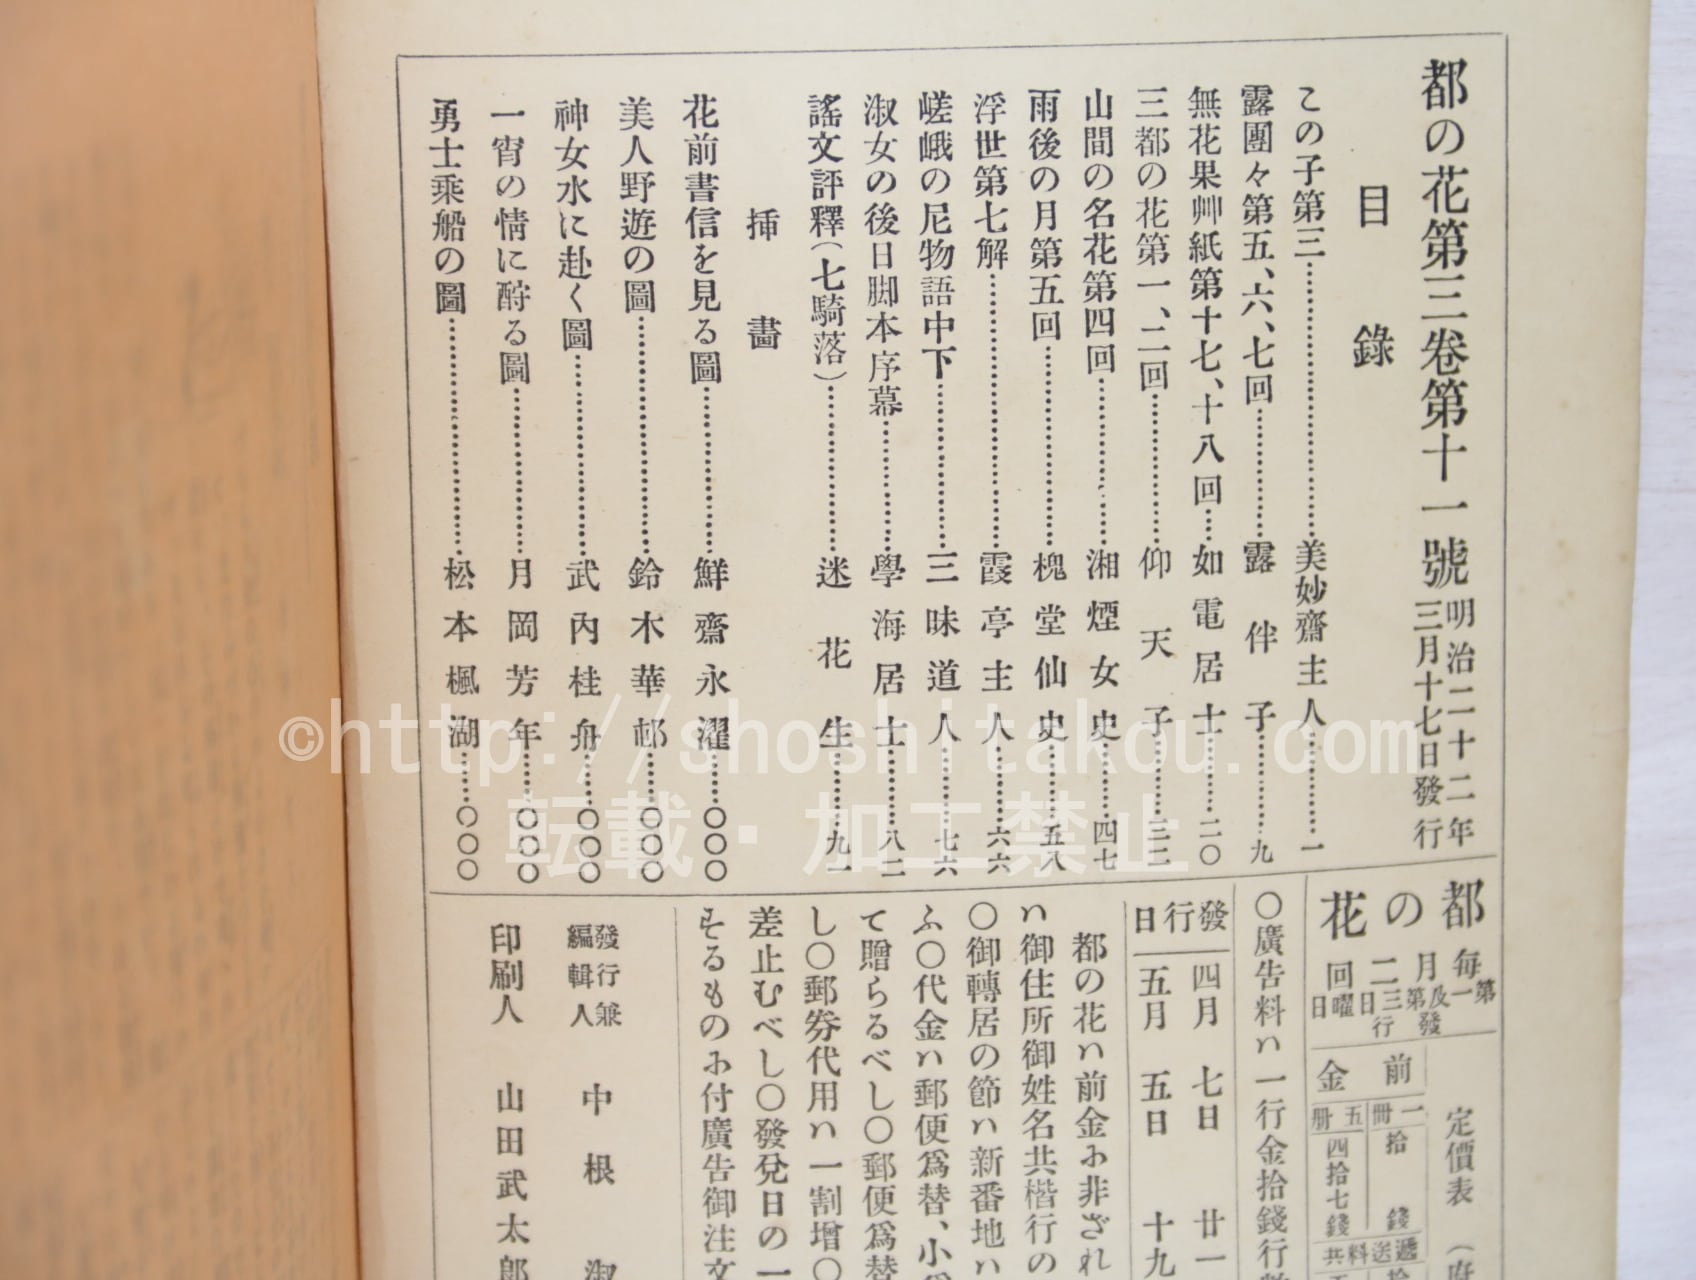 都の花第三卷第十一號 明治二十二年三月十七日發行
目錄
この子第三……美妙齋主人……一
露團々第五、六、七回……露伴子……九
無花果艸紙第十七、十八回…如電居士……二〇
三都の花第一、二回……仰天子……三二
山間の名花第四回……湘煙女史……四七
雨後の月第五回……槐堂仙史……五八
浮世第七解……霞亭主人……六六
嵯峨の尼物語中下……三昧道人……七六
淑女の後日脚本序幕……學海居士……八二
謠文評釋(七騎落)……迷花生……九一
挿畵
花前書信を見る圖……鮮齋永濯……〇〇〇
美人野遊の圖……鈴木華邨……〇〇〇
神女水に赴く圖……武内桂舟……〇〇〇
一宵の情に酧る圖……月岡芳年……〇〇〇
勇士乘船の圖……松本楓湖……〇〇〇
都の花
毎月二回
第一及第三日曜日發行
定價表
前金
一冊 拾錢
五冊 四拾七錢
遞送料共
〇廣告料ハ一行金拾錢行
發行日
四月 七日 廿一
五月 五日 十九
都の花ハ前金ふ非ざれ
ハ御住所御姓名共楷行の
〇御轉居の節ハ新番地ハ
ふ〇代金ハ郵便爲替、小
て贈らるべし〇郵便爲替
し〇郵券代用ハ一割增〇
差止むべし〇發兌日の一
するものふ付廣告御注文
發行兼編輯人 中根淑
印刷人 山田武太郎
©http://shoshitakou.com
転載・加工禁止